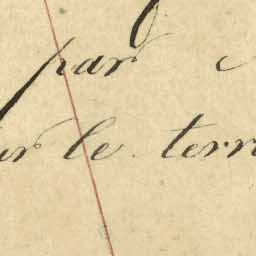 par
le terr